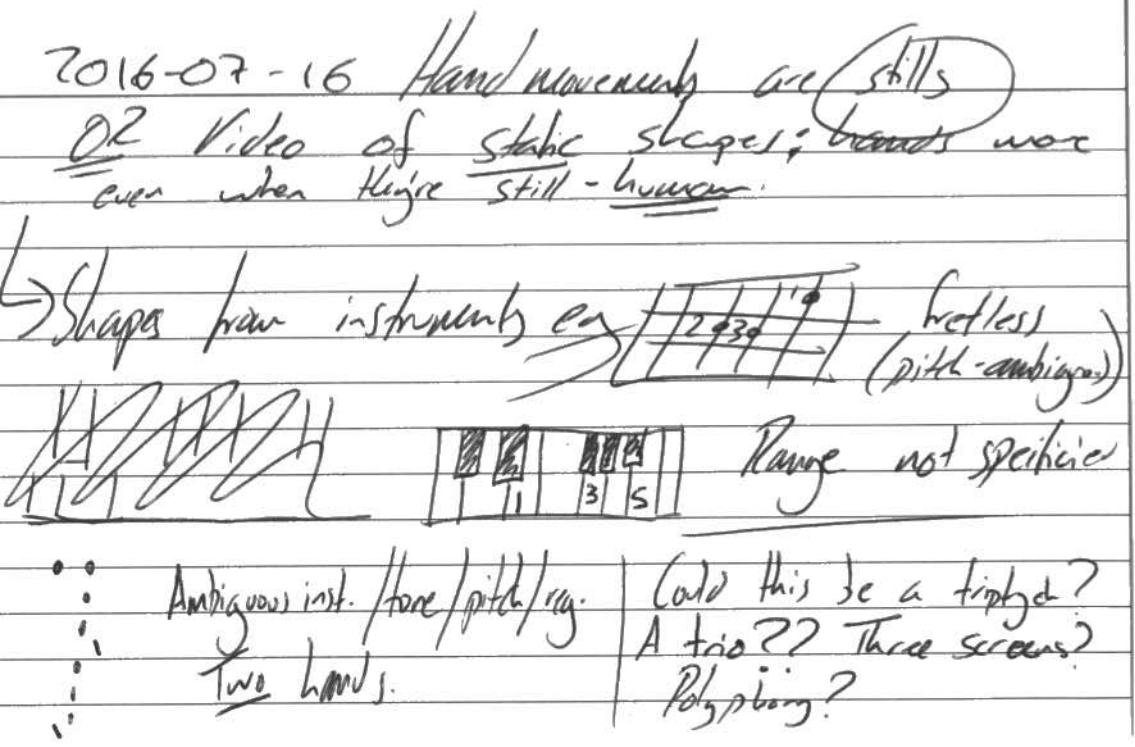 2016-07-16 Hand movements are stills
02 Video of static shapes; hands move
even when they're still - human.
Shapes from instruments eg
2 3 1
fretless
(pitch-ambiguous)
1 3 5
Range not specificied
Ambiguous inst. / tone / pitch / reg.
Two hands.
Could this be a triptych?
A trio?? Three screens?
Polyphony?